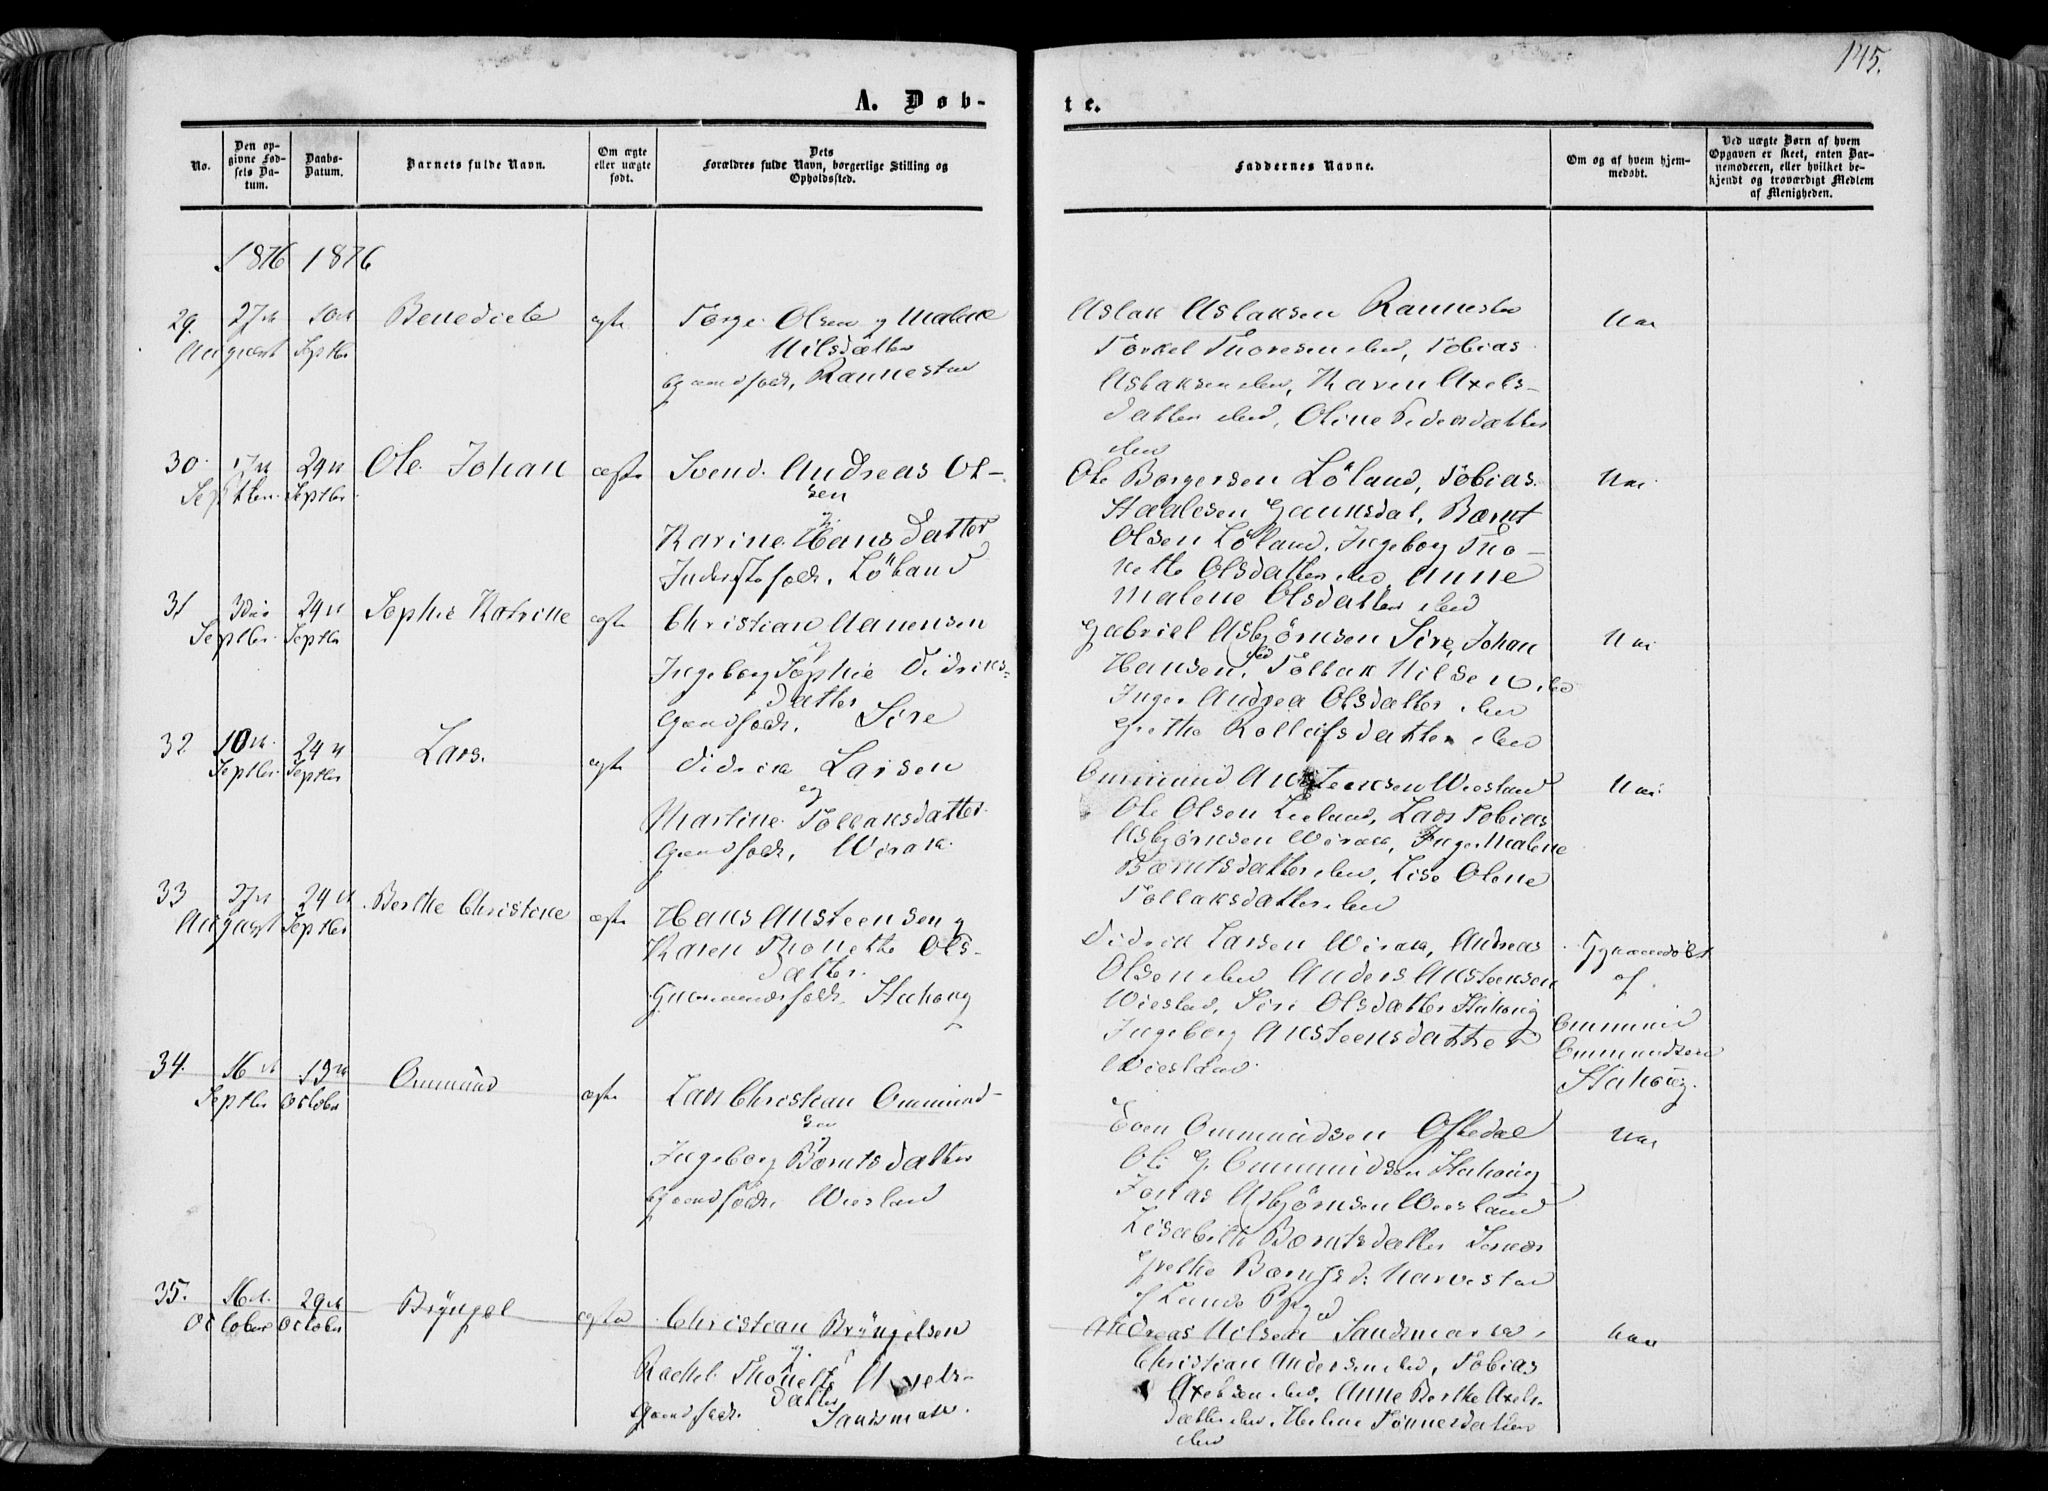 145.
A. Døb-
te.
No.
Den opgivne Fødsels Datum.
Daabs-Datum.
Barnets fulde Navn.
Om ægte eller uægte født.
Dets Forældres fulde Navn, borgerlige Stilling og Opholdssted.
Faddernes Navne.
Om og af hvem hjemmedøbt.
Ved uægte Børn af hvem Opgaven er skeet, enten Barnemoderen, eller hvilket bekjendt og troværdigt Medlem af Menigheden.
1876 1876
29. 27de August
10de Septbr
Benedicte
ægte
Torge Olsen og Malene
Nilsdatter
Gaardfolk, Rannestad
Aslak Aslaksen Rannestad
Torkel Thoresen ibid, Tobias
Aslaksen ibid, Karen Axels-
datter ibid, Oline Pedersdatter
ibid
Nei
30. Septbr.
24de Septbr.
Ole Johan
ægte
Svend Andreas Ol-
sen
og
Karine Hansdatter
Inderstfolk, Löland
Ole Børgersen Löland, Tobias
Staalesen Gaunsdal, Bernt
Olsen Löland, Ingeborg Tho-
nette Olsdatter ibid, Anne
Malene Olsdatter ibid
Nei
31 3die Septbr.
24de Septbr
Sophie Katrine
ægte
Christian Aanensen
og
Ingeborg Sophie Didriks-
datter
Gaardfolk, Sire
Gabriel Asbjørnsen Sire, Johan
Hansen ibid, Tollak Nilsen ibid
Inger Andrea Olsdatter ibid
Grethe Rolleifsdatter ibid
Nei
32 10de Septbr.
24de Septbr
Lars.
ægte
Didrik Larsen
og
Martine Tollaksdatter
Gaardfolk, Wirak
Ommund Austeensen Wiesland
Ole Olsen Lieland, Lars Tobias
Asbjørnsen Wirak, Inger Malene
Berntsdatter ibid, Lise Olene
Tollaksdatter ibid
Nei
33 27de August
24de Septbr
Berthe Christine
ægte
Hans Austeensen og
Karen Thonette Ols-
datter.
Gaardmandsfolk Stuhoug
Didrik Larsen Wirak, Andreas
Olsen ibid Anders Austeensen
Wiesland, Siri Olsdatter Stuhoug
Ingeborg Austeensdatter
Wiesland.
Hjemmedøbt
af
Ommund
Ommundsen
Stuhoug.
34. 16de Septbr
October
Ommund
ægte
Lars Christian Ommund-
sen
og
Ingeborg Berntsdatter
Gaardfolk, Wiesland
Even Ommundsen Oftedal
Ole G. Ommundsen Stuhoug
Jonas Asbjørnsen Wiesland
Lisabeth Berntsdatter
Grethe Berntsd: Narvestad
f Lunds Prgjd
Nei
35. 16de October
29de October
Brÿngel
ægte
Christian Brÿngelsen
og
Rachel Thonette Axels-
datter
Gaardfolk. Sandsmark.
Andreas Nilsen Sandsmark,
Christian Andersen ibid, Tobias
Axelsen ibid, Anne Berthe Axels-
datter ibid, Helene Tønnesdatter
ibid
Nei